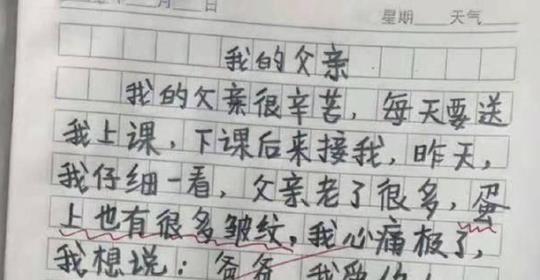 月 日
星期 天气
我的父亲
我的父亲很辛苦，每天要送
我上课，下课后来接我，昨天，
我仔细一看，父亲老了很多，蛋
上也有很多皱纹，我心痛极了，
我想说：爸爸，我爱你